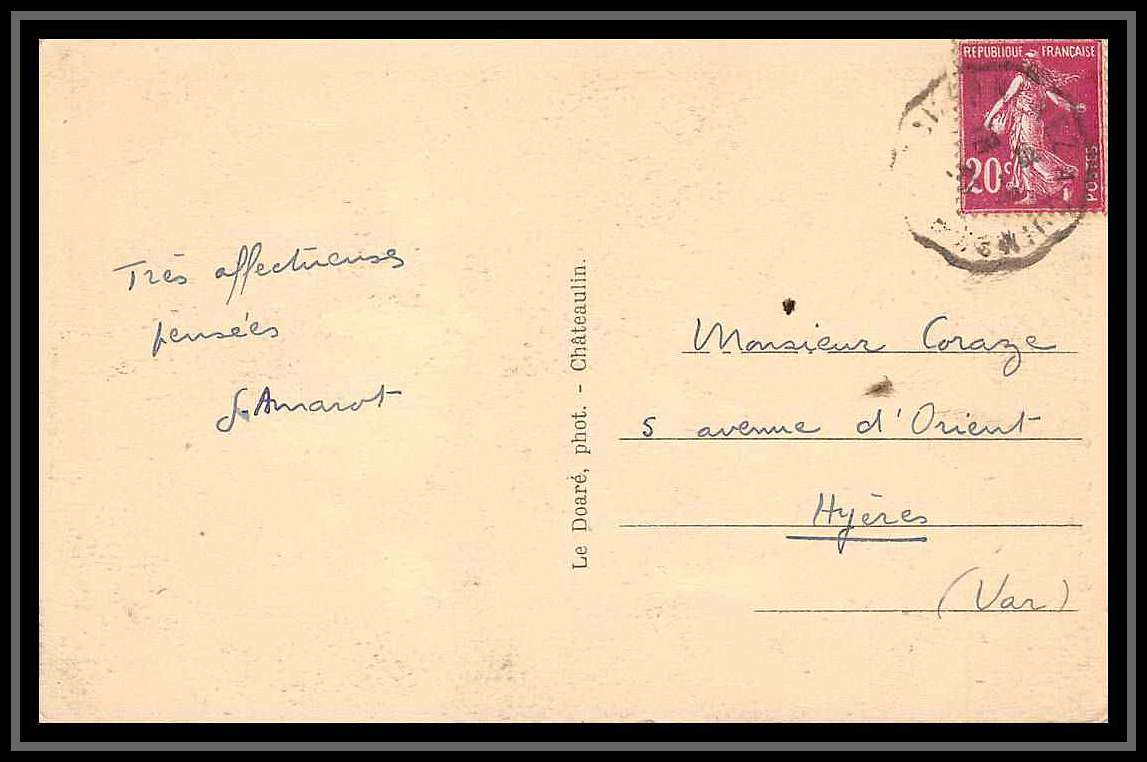 RÉPUBLIQUE FRANÇAISE
20c
POSTES
Très affectueuses
pensées
S. Amarot
Le Doaré, phot. - Châteaulin.
Monsieur Coraze
5 avenue d'Orient
Hyères
(Var)